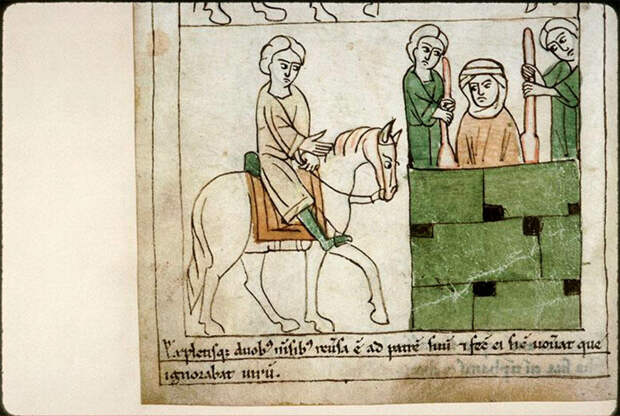 Expletisq; duob᷒ m̄sib᷒ reu͛sa ē ad patrē suū ⁊ fec̄ ei sic̄ uou͛at que
ignorabat uirū.